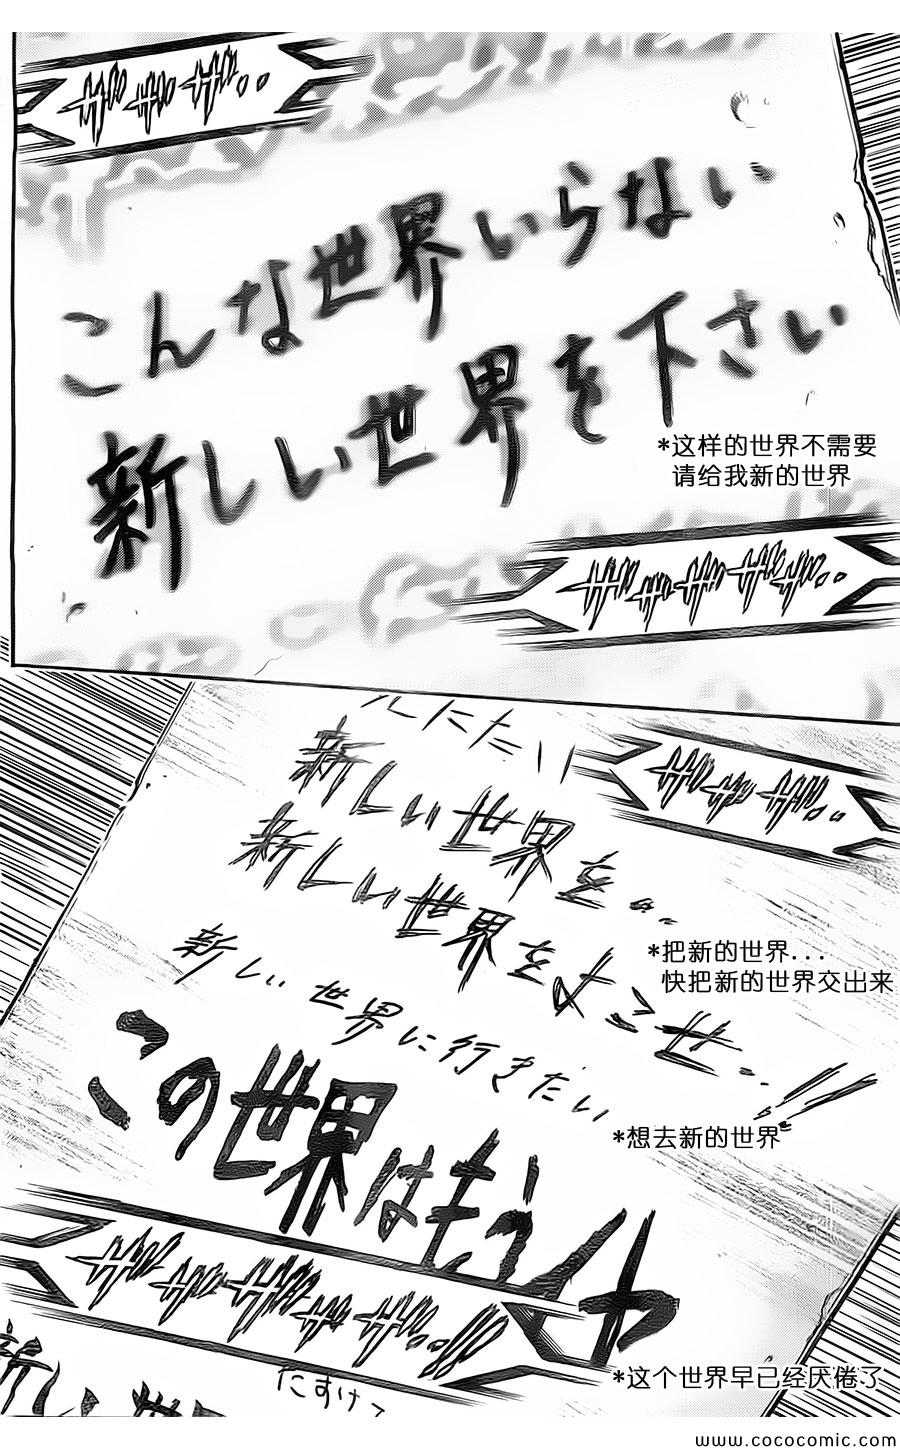 ザザザ..
こんな世界いらない
新しい世界を下さい
*这样的世界不需要
请给我新的世界
ザザザザザ..
新しい世界を..
ザザザ..
新しい世界をよこせ..!!
*把新的世界...
快把新的世界交出来
新しい世界に行きたい
*想去新的世界
この世界はもうイヤ
ザザザザザ..
*这个世界早已经厌倦了
新しい世界
たすけて
www.cococomic.com